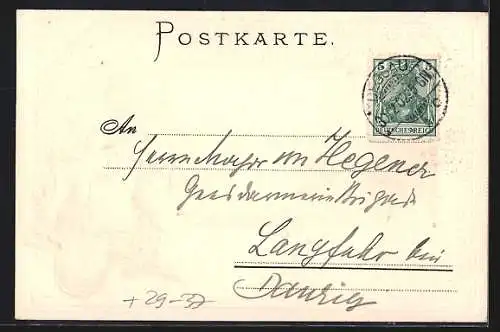 POSTKARTE.
5 5
DEUTSCHES REICH
An
Herrn Major von Hegener
Gensdarmerie Brigade
Langfuhr bei
Danzig
+ 29-37